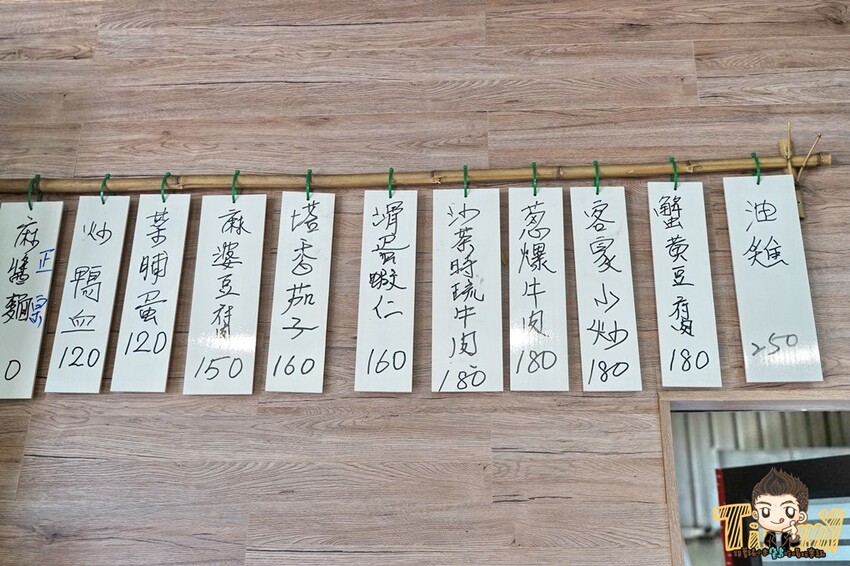 油雞
250
蟹黄豆腐
180
客家小炒
180
蔥爆牛肉
180
沙茶時疏牛肉
180
滑蛋蝦仁
160
塔香茄子
160
麻婆豆腐
150
菜脯蛋
120
炒鴨血
120
麻醬麵
正
0
Timmy